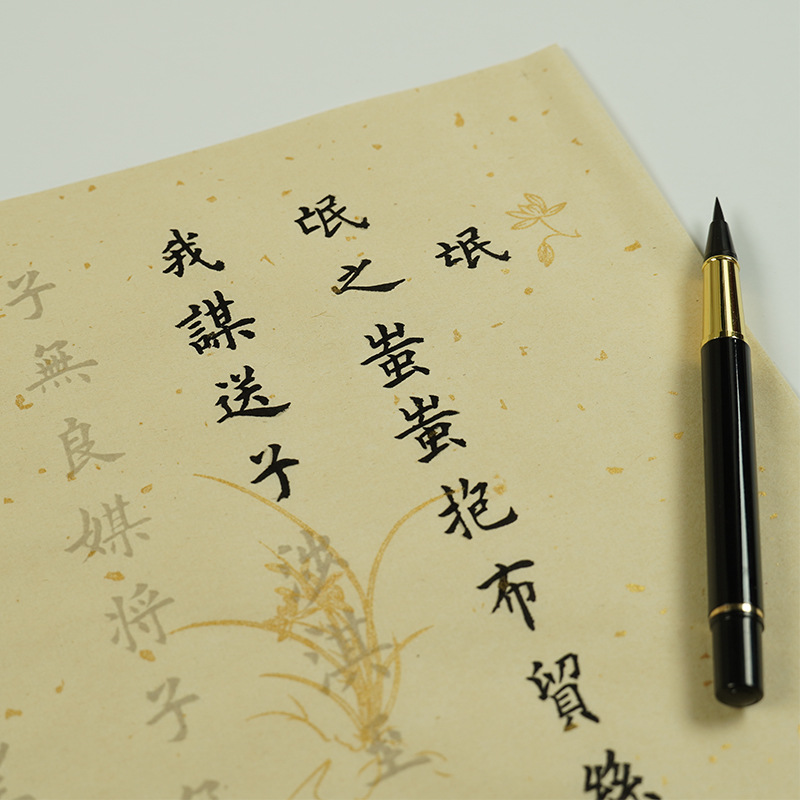 氓
氓之蚩蚩抱布貿絲
我謀送子涉淇至
子無良媒將子